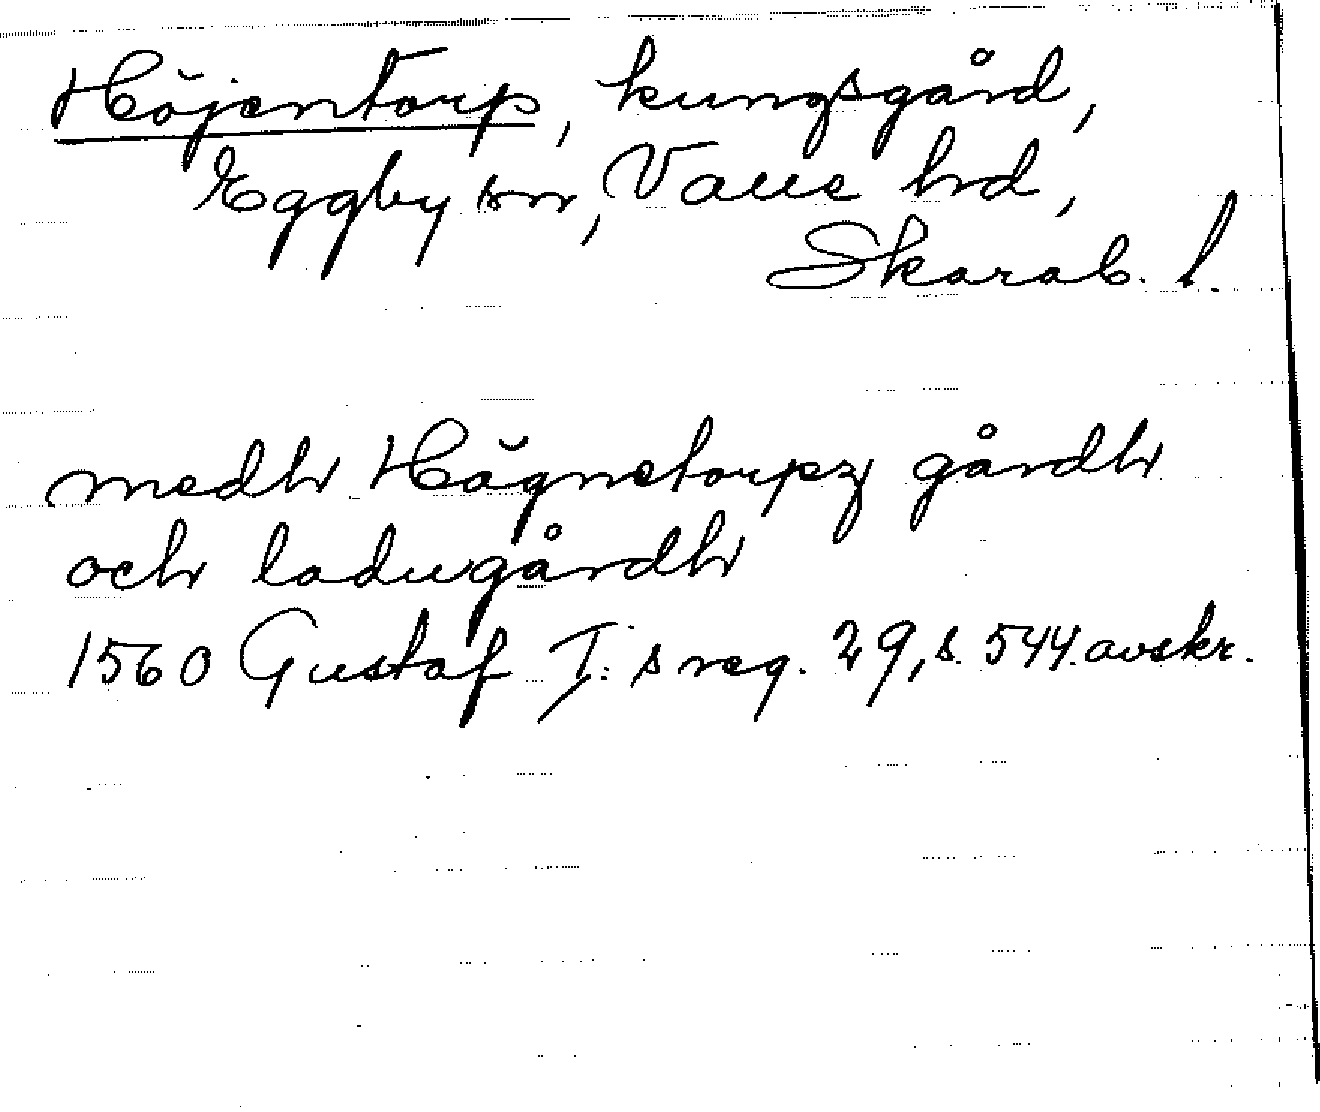 Höjentorp, kungsgård,
Eggby sn, Valle hd,
Skarab. l.
medh Högnetorpz gårdh
och ladugårdh
1560 Gustaf I:s reg. 29, s. 544. avskr.